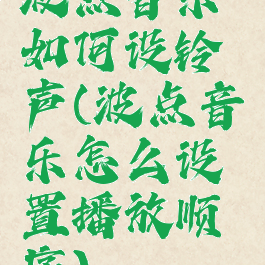 波点音乐
如何设铃
声(波点音
乐怎么设
置播放顺
序)